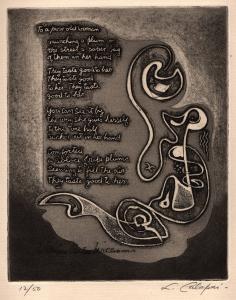 To a poor old woman
munching a plum on
the street a paper bag
of them in her hand
They taste good to her
They taste good
to her. They taste
good to her
You can see it by
the way she gives herself
to the one half
sucked out in her hand
Comforted
a solace of ripe plums
seeming to fill the air
They taste good to her
12/50
L. Calapai